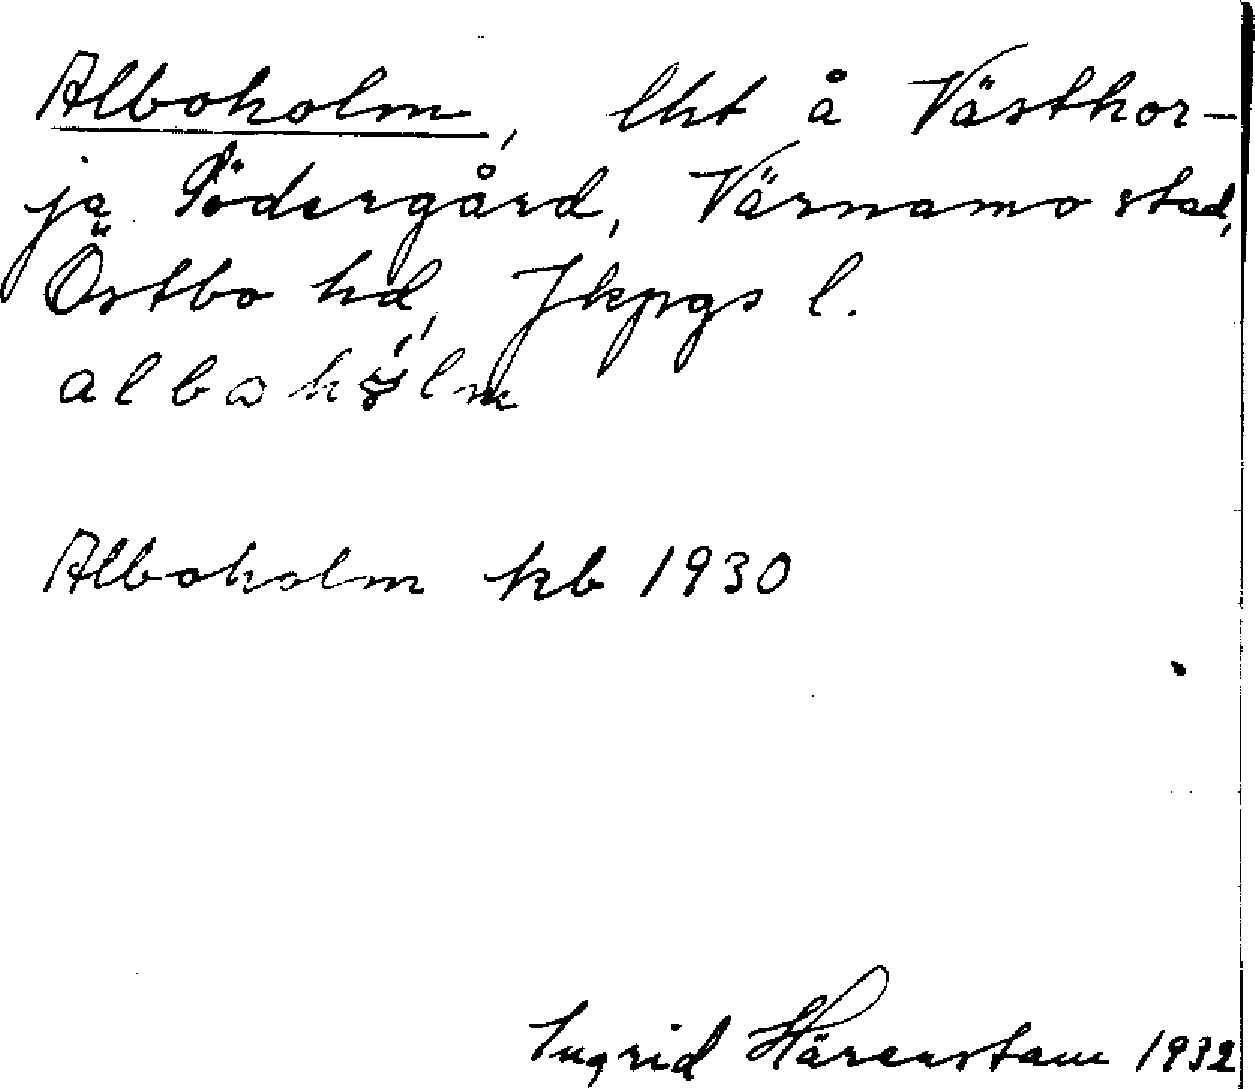 Alboholm, lht å Västhor-
ja Södergård, Värnamo stad,
Östbo hd, Jkpgs l.
Alboholm kb 1930
Ingrid Härenstam 1932